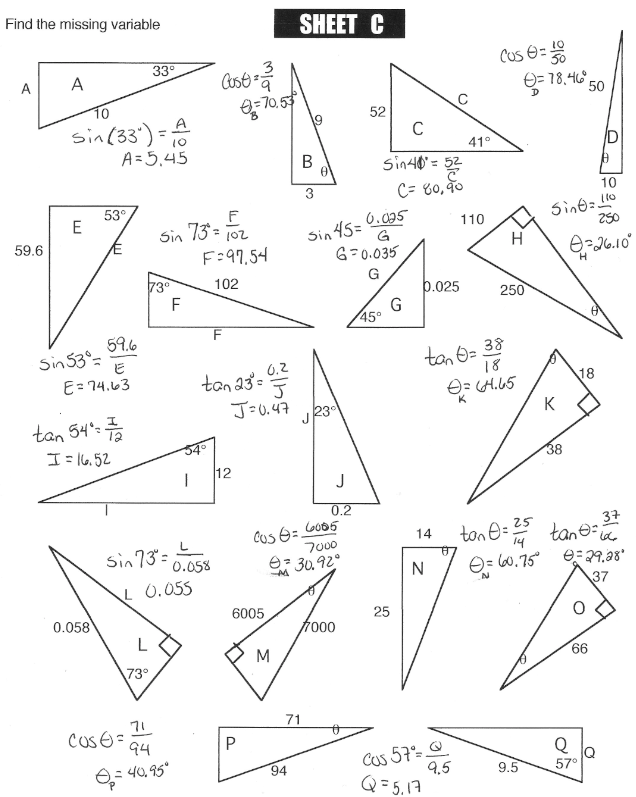 Find the missing variable
SHEET C
A
A
33°
10
sin(33°) = A/10
A = 5.45
cosθ = 3/9
θ_B = 70.53°
9
B
θ
3
52
C
C
41°
sin41° = 52/C
C = 80.90
cos θ = 10/50
θ_D = 78.46°
50
D
θ
10
59.6
E
53°
E
sin53° = 59.6/E
E = 74.63
sin 73° = F/102
F = 97.54
73°
102
F
F
sin 45 = 0.025/G
G = 0.035
G
0.025
G
45°
110
H
250
θ
sinθ = 110/250
θ_H = 26.10°
tan 54° = I/12
I = 16.52
54°
I
12
I
tan 23° = 0.2/J
J = 0.47
J
23°
J
0.2
tan θ = 38/18
θ_K = 64.65
θ
18
K
38
sin 73° = L/0.058
L 0.055
0.058
L
73°
cos θ = 6005/7000
θ_M = 30.92°
θ
6005
7000
M
14
θ
N
25
tan θ = 25/14
θ_N = 60.75°
tan θ = 37/66
θ = 29.28°
37
O
66
θ
cos θ = 71/94
θ_P = 40.95°
71
P
θ
94
cos 57° = Q/9.5
Q = 5.17
Q
Q
57°
9.5